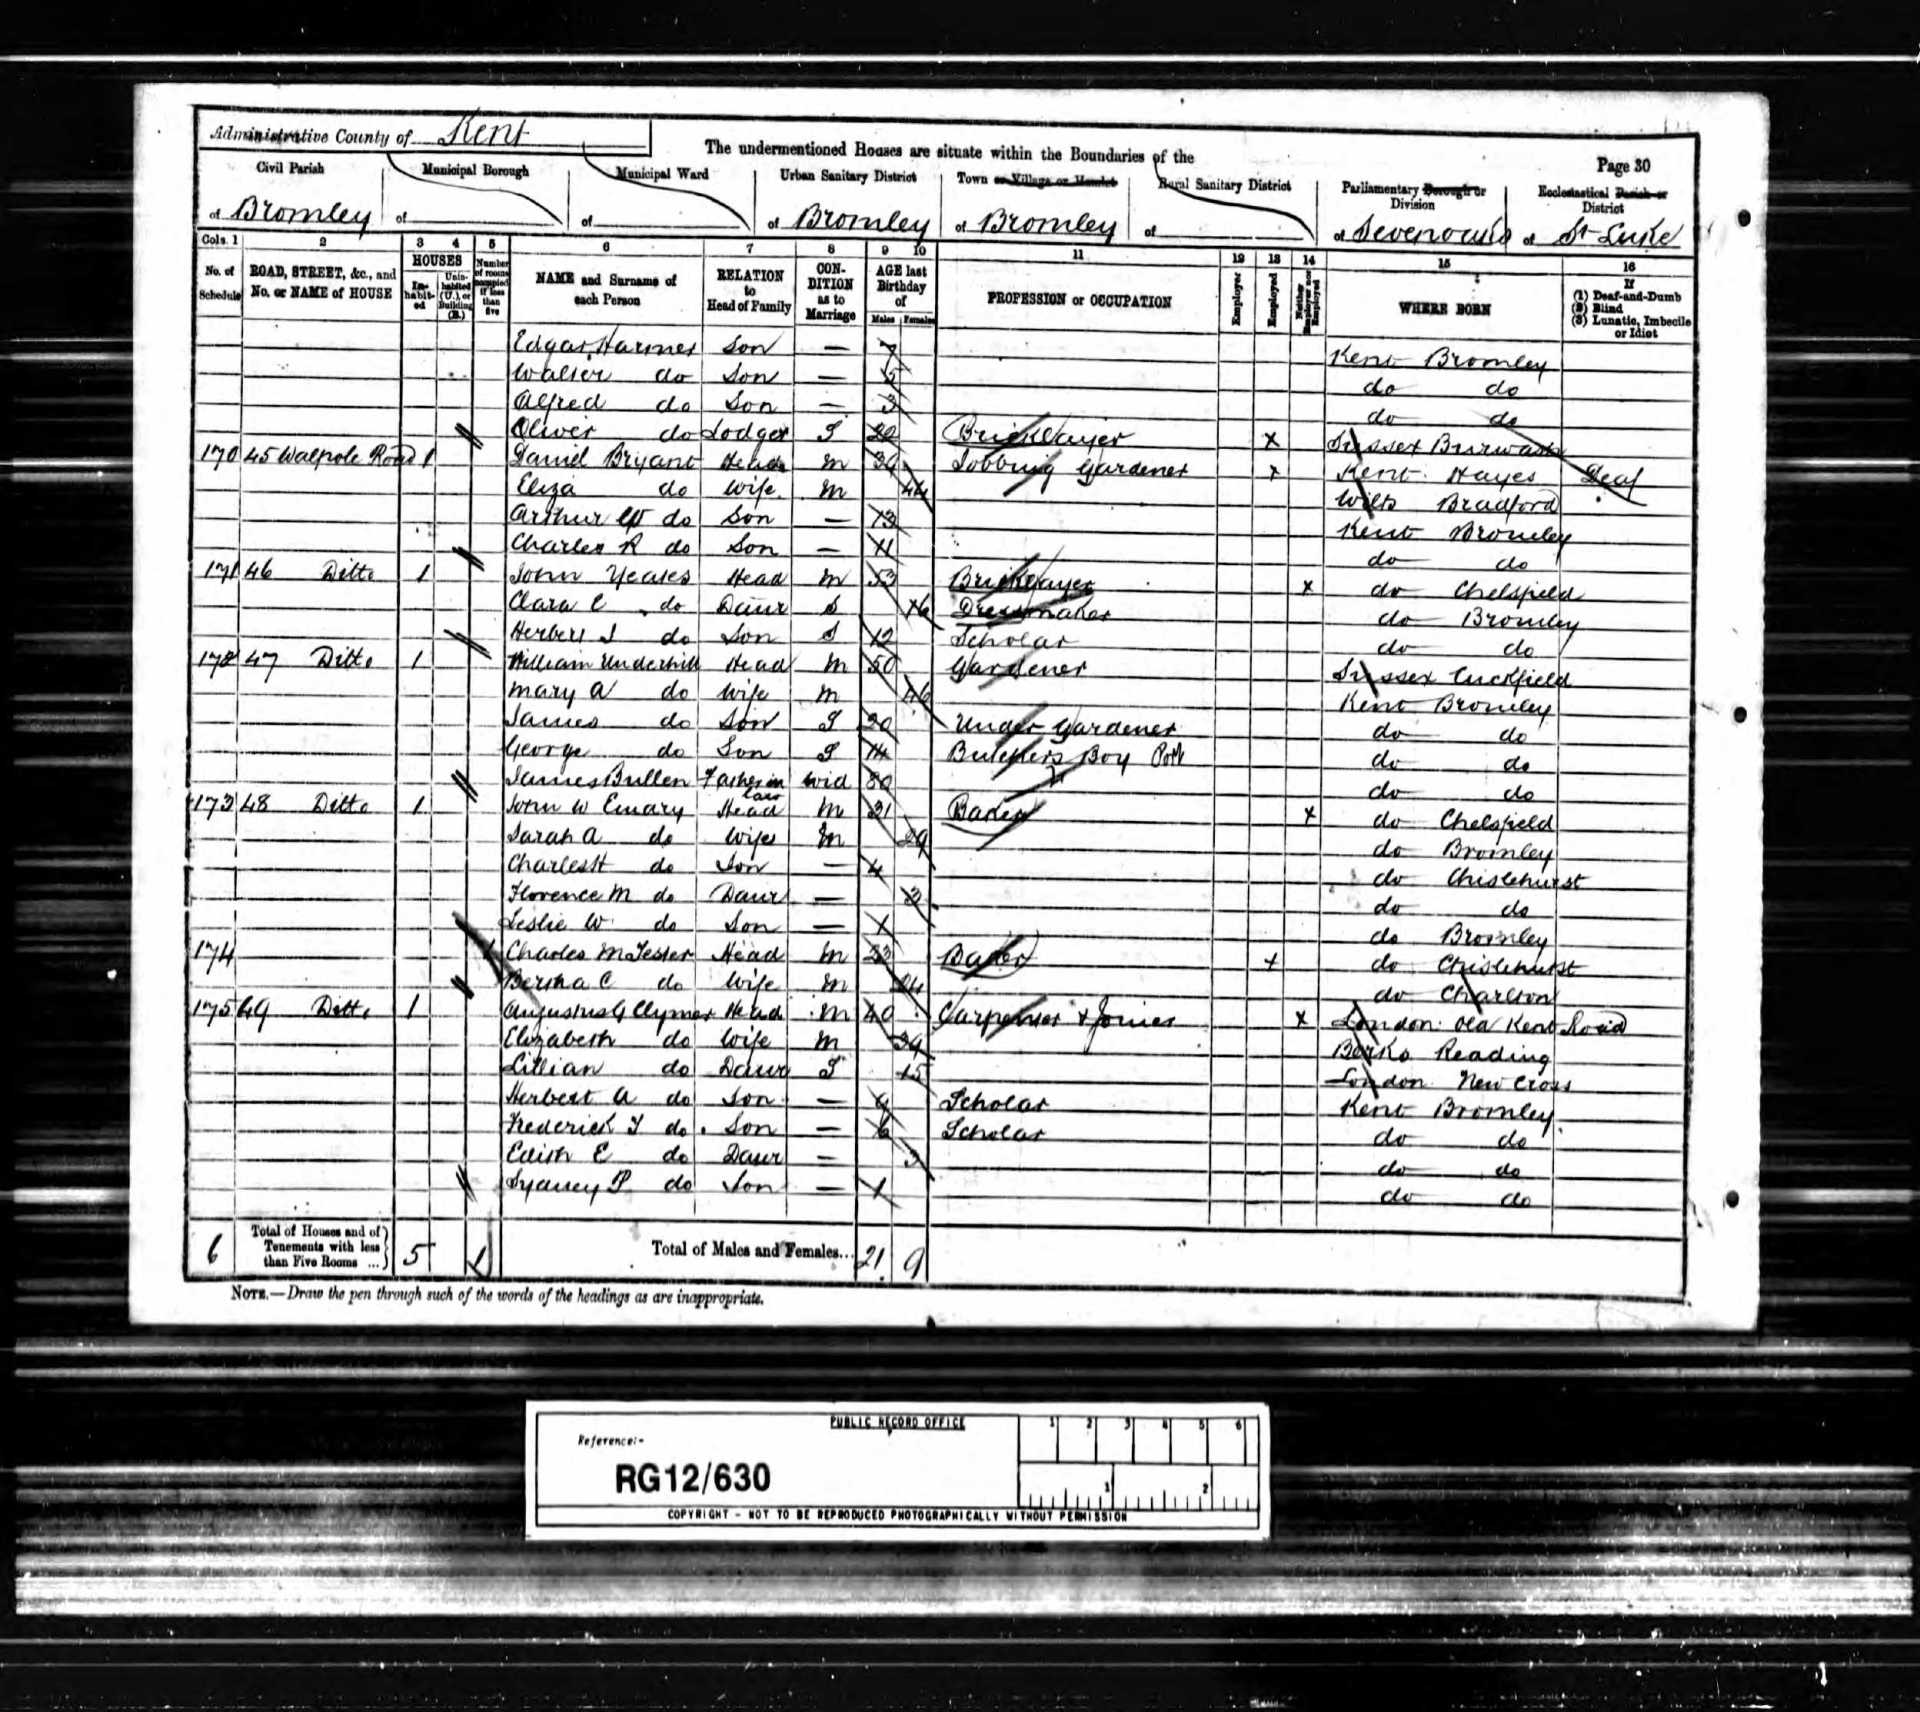 Administrative County of Kent
The undermentioned Houses are situate within the Boundaries of the
Page 30
Civil Parish
of Bromley
Municipal Borough
of
Municipal Ward
of
Urban Sanitary District
of Bromley
Town or Village or Hamlet
of Bromley
Rural Sanitary District
of
Parliamentary Borough or Division
of Sevenoaks
Ecclesiastical Parish or District
of St Luke
Cols. 1 2 3 4 5 6 7 8 9 10 11 12 13 14 15 16
No. of Schedule
ROAD, STREET, &c., and No. or NAME of HOUSE
HOUSES
Inhabited
Uninhabited (U.), or Building (B.)
Number of rooms occupied if less than five
NAME and Surname of each Person
RELATION to Head of Family
CONDITION as to Marriage
AGE last Birthday of
Males Females
PROFESSION or OCCUPATION
Employer
Employed
Neither Employer nor Employed
WHERE BORN
If
(1) Deaf-and-Dumb
(2) Blind
(3) Lunatic, Imbecile or Idiot
Edgar Harmer Son — 7 Kent Bromley
Walter do Son — 5 do do
Alfred do Son — 3 do do
Oliver do Lodger S 20 Bricklayer x Sussex Burwash
170 45 Walpole Road 1 Daniel Bryant Head M Jobbing Gardener x Kent Hayes Deaf
Eliza do Wife M 44 Wilts Bradford
Arthur W do Son — 13 Kent Bromley
Charles R do Son — 11 do do
171 46 Ditto 1 John Yeates Head M 53 Bricklayer x do Chelsfield
Clara C do Daur S 16 Dressmaker do Bromley
Herbert J do Son S 12 Scholar do do
172 47 Ditto 1 William Underhill Head M 50 Gardener Sussex Cuckfield
Mary A do Wife M 46 Kent Bromley
James do Son S 20 Under Gardener do do
George do Son S 14 Butchers Boy do do
James Bullen Father in law Wid 80 do do
173 48 Ditto 1 John W Emary Head M 31 Baker x do Chelsfield
Sarah A do Wife M 29 do Bromley
Charles H do Son — 4 do Chislehurst
Florence M do Daur — 3 do do
Leslie W do Son — 1 do Bromley
174 Charles M Tester Head M 23 Baker x do Chislehurst
Bertha C do Wife M 24 do Charlton
175 49 Ditto 1 Augustus G Clymer Head M 40 Carpenter & Joiner x London Old Kent Road
Elizabeth do Wife M 39 Berks Reading
Lillian do Daur S 15 London New Cross
Herbert A do Son — 9 Scholar Kent Bromley
Frederick T do Son — 6 Scholar do do
Edith E do Daur — 3 do do
Sydney P do Son — 1 do do
6 Total of Houses and of Tenements with less than Five Rooms ... 5 1 Total of Males and Females... 21 9
NOTE.—Draw the pen through such of the words of the headings as are inappropriate.
PUBLIC RECORD OFFICE
Reference:-
RG12/630
1 2 3 4 5 6
1 2
COPYRIGHT - NOT TO BE REPRODUCED PHOTOGRAPHICALLY WITHOUT PERMISSION